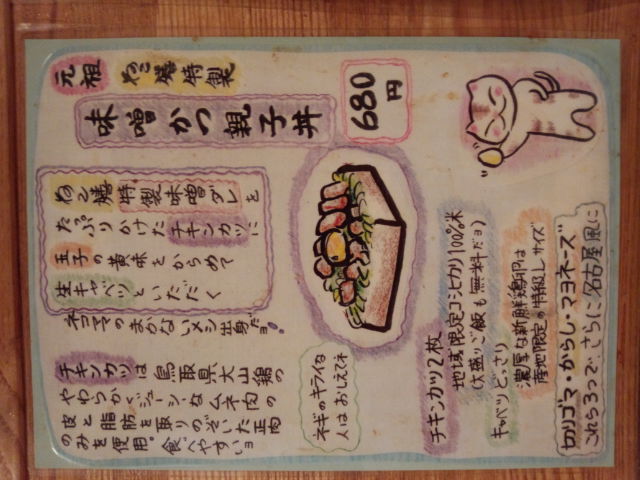 元祖 ねこ膳特製
味噌かつ親子丼
680円
ねこ膳特製味噌ダレを
たっぷりかけたチキンカツに
玉子の黄味をからめて
生キャベツといただく
ネコママのまかないメシ出身だョ。
チキンカツは鳥取県大山鶏の
やわらかくジューシーなムネ肉の
皮と脂肪を取りのぞいた正肉
のみを使用。食べやすいョ
ネギのキライな
人はおしえてネ
チキンカツ2枚
地域限定コシヒカリ100%米
(大盛りご飯も無料だョ)
キャベツどっさり
濃厚な新鮮鶏卵は
産地限定の特級Lサイズ
切りゴマ・からし・マヨネーズ
これら3つで、さらに名古屋風に